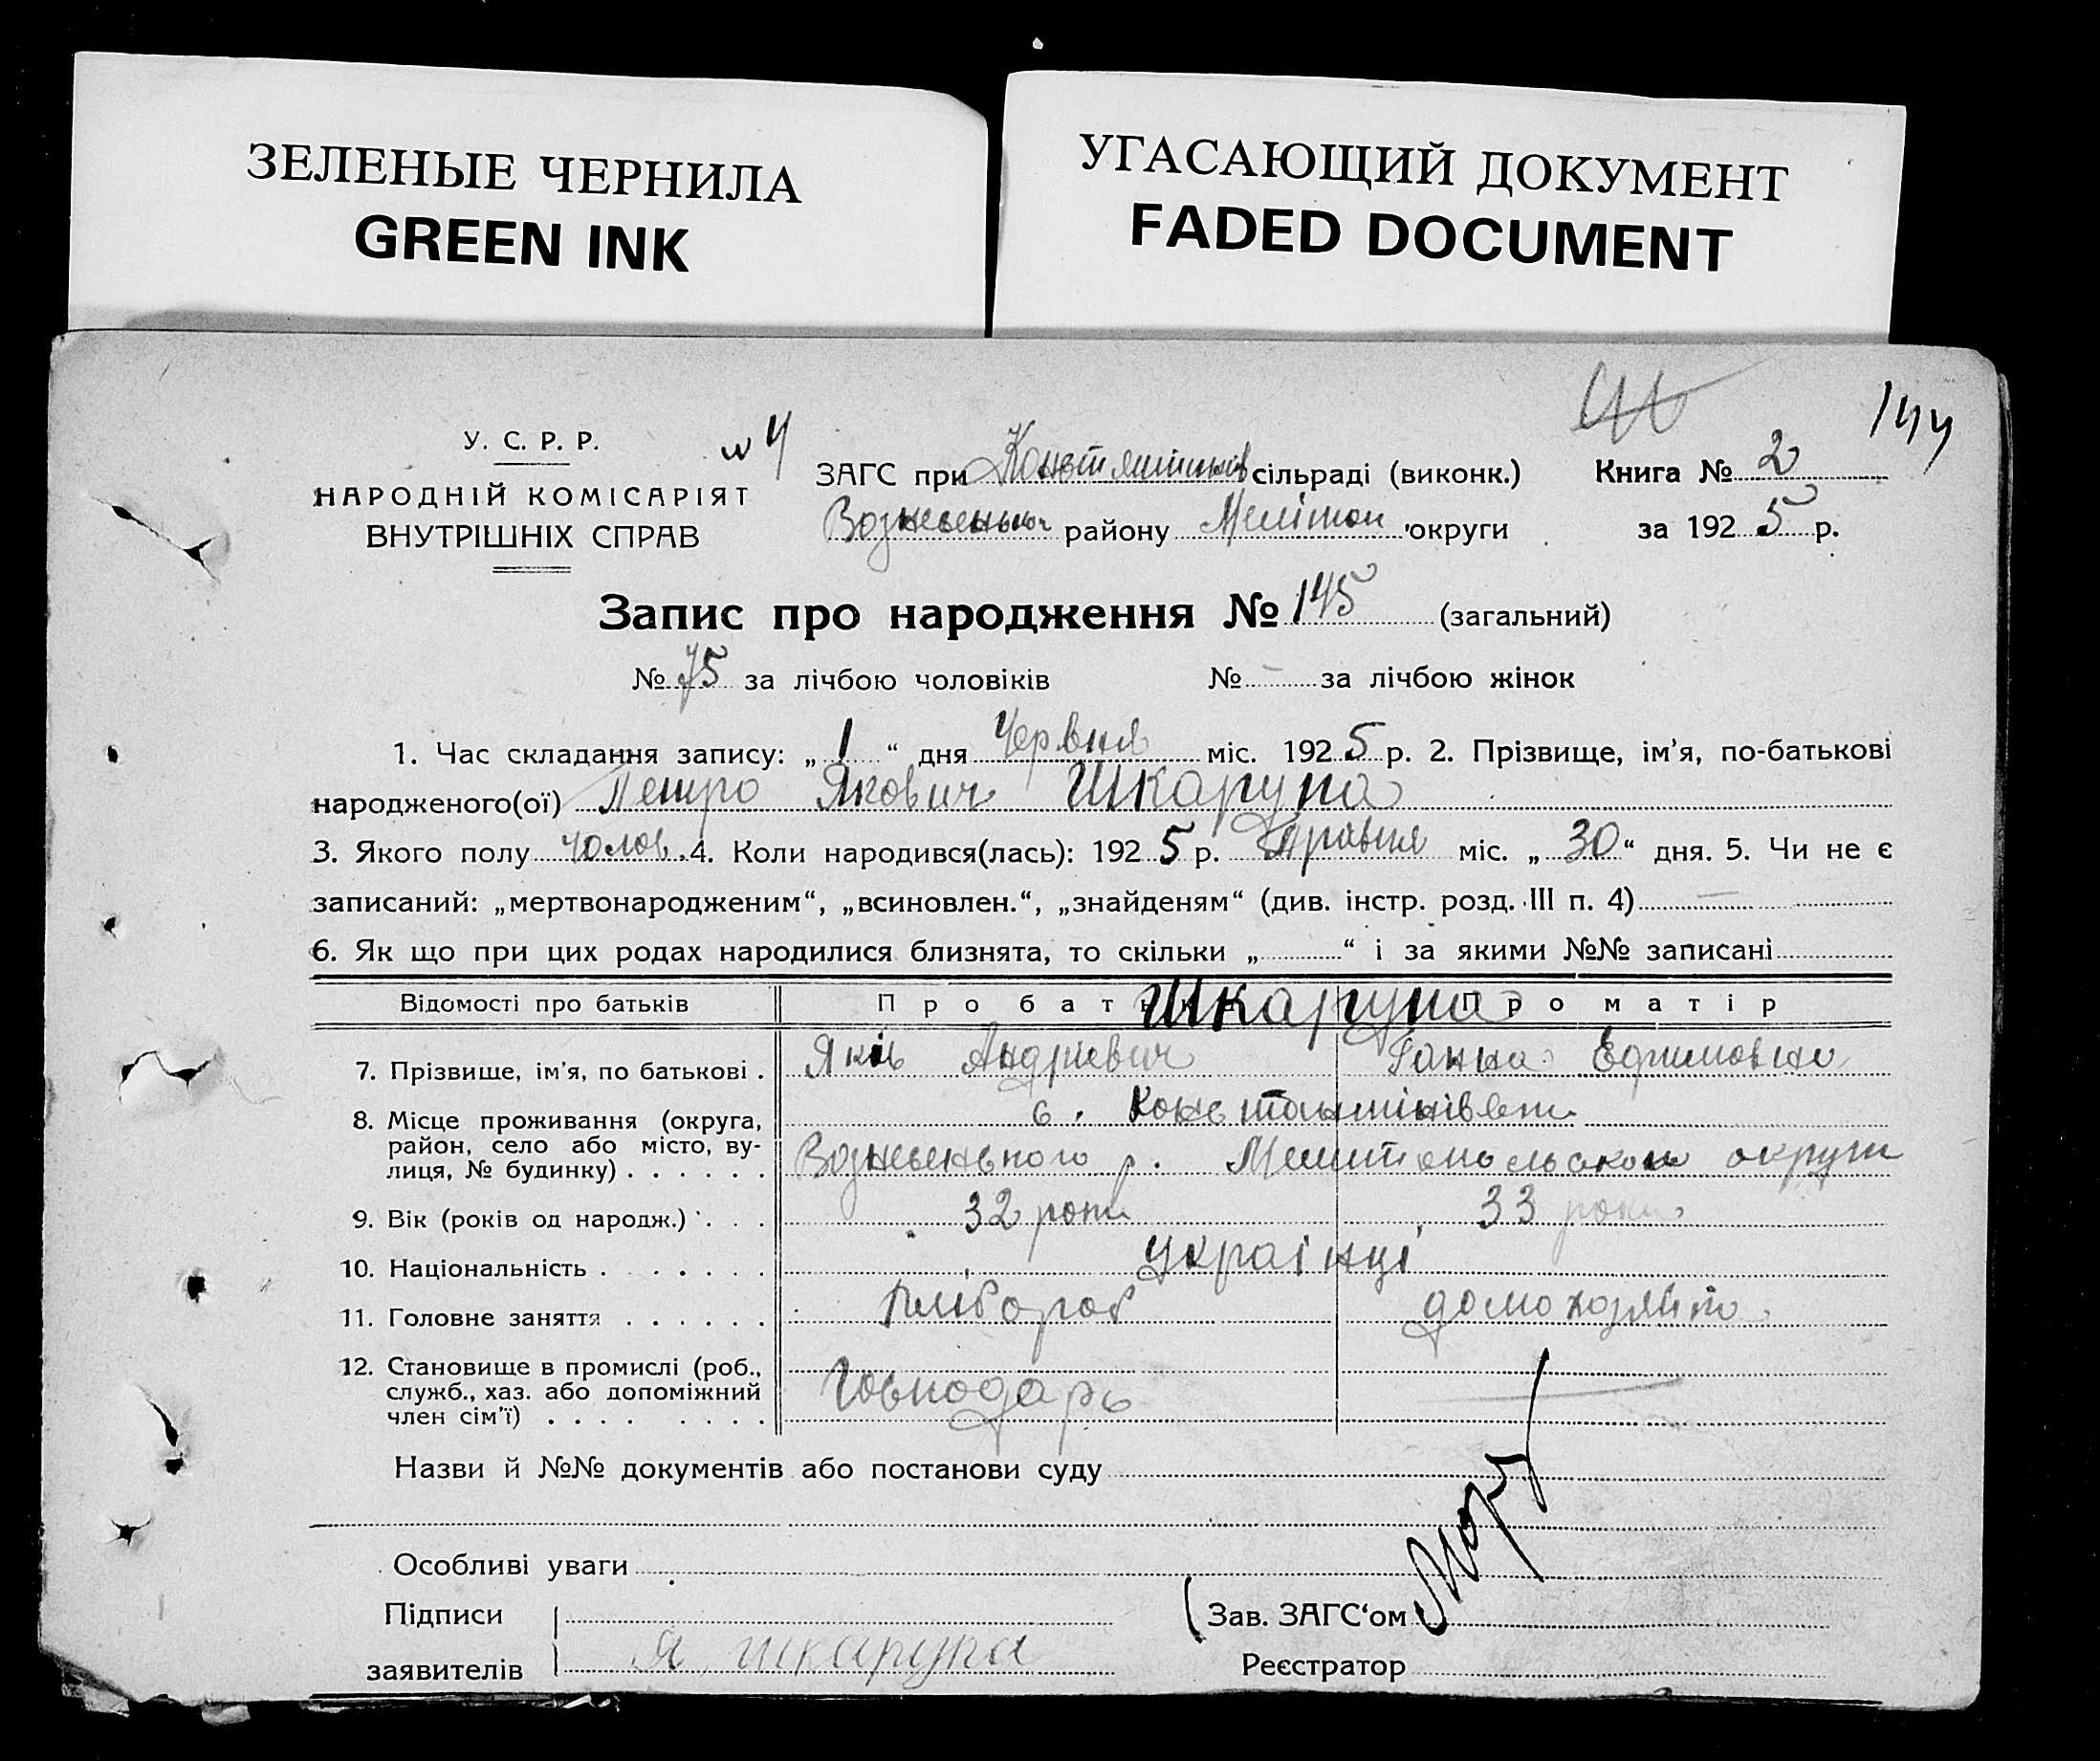 ЗЕЛЕНЫЕ ЧЕРНИЛА
GREEN INK
УГАСАЮЩИЙ ДОКУМЕНТ
FADED DOCUMENT
144
У. С. Р. Р.
НАРОДНІЙ КОМІСАРІЯТ
ВНУТРІШНІХ СПРАВ
ЗАГС при Констянтинів сільраді (виконк.) Книга № 2
району Меліт. округи за 1925 р.
Запис про народження № 145 (загальний)
№ 75 за лічбою чоловіків № - за лічбою жінок
1. Час складання запису: „ 1 “ дня Червня міс. 1925 р. 2. Прізвище, ім’я, по-батькові
народженого(ої) Петро Якович Шкарупа
3. Якого полу чолов. 4. Коли народився(лась): 1925 р. Травня міс. „ 30 “ дня. 5. Чи не є
записаний: „мертвонародженим“, „всиновлен.“, „знайденям“ (див. інстр. розд. III п. 4) —
6. Як що при цих родах народилися близнята, то скільки „ “ і за якими №№ записані
Відомості про батьків Про батька Про матір
Шкарупа
7. Прізвище, ім’я, по батькові . Яків Андрієвич Ганна Ефимовна
8. Місце проживання (округа, с. Константинівки
район, село або місто, ву-
лиця, № будинку) . . . . . . Вознесенського р. Мелитопольскои округи
9. Вік (років од народж.) . . . 32 роки 33 роки
10. Національність . . . . . . українці
11. Головне заняття . . . . . . хлібороб домохозяйка
12. Становище в промислі (роб.,
служб., хаз. або допоміжний Господарь —
член сім’ї) . . . . . . . .
Назви й №№ документів або постанови суду
Особливі уваги
Підписи
заявителів Я. Шкарупа
Зав. ЗАГС‘ом
Реєстратор